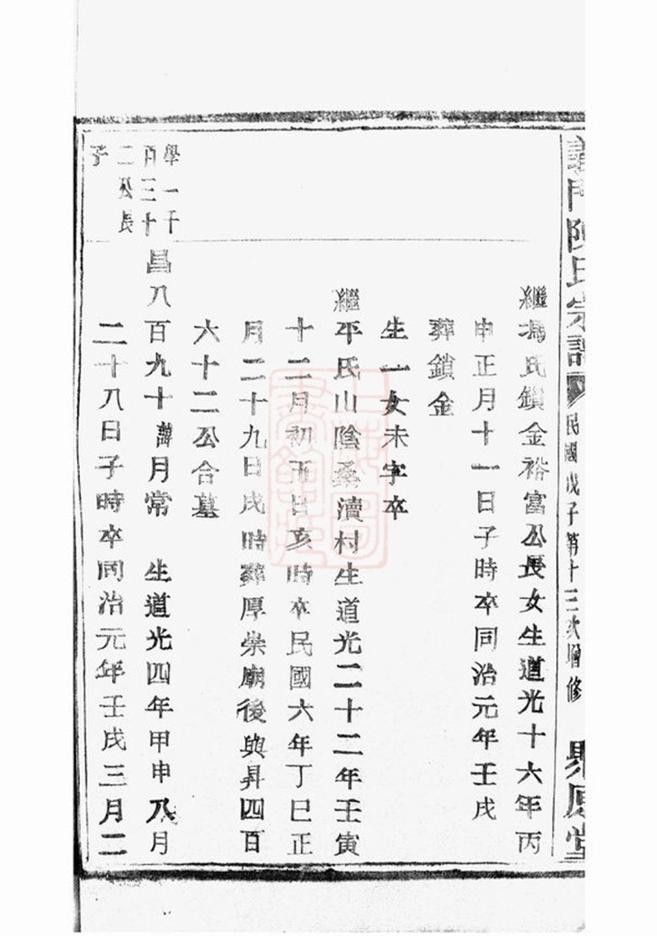 義門陳氏宗譜
民國戊子第十三次增修
聚原堂
繼馮氏鎖金裕富公長女生道光十六年丙
申正月十一日子時卒同治元年壬戌
葬鎖金
生一女未字卒
繼平氏山陰桑瀆村生道光二十二年壬寅
十二月初五日亥時卒民國六年丁巳正
月二十九日戌時葬厚崇廟後與昇四百
六十二公合墓
學一千
百三十
二公長
子
昌八百九十諱月常 生道光四年甲申八月
二十八日子時卒同治元年壬戌三月二